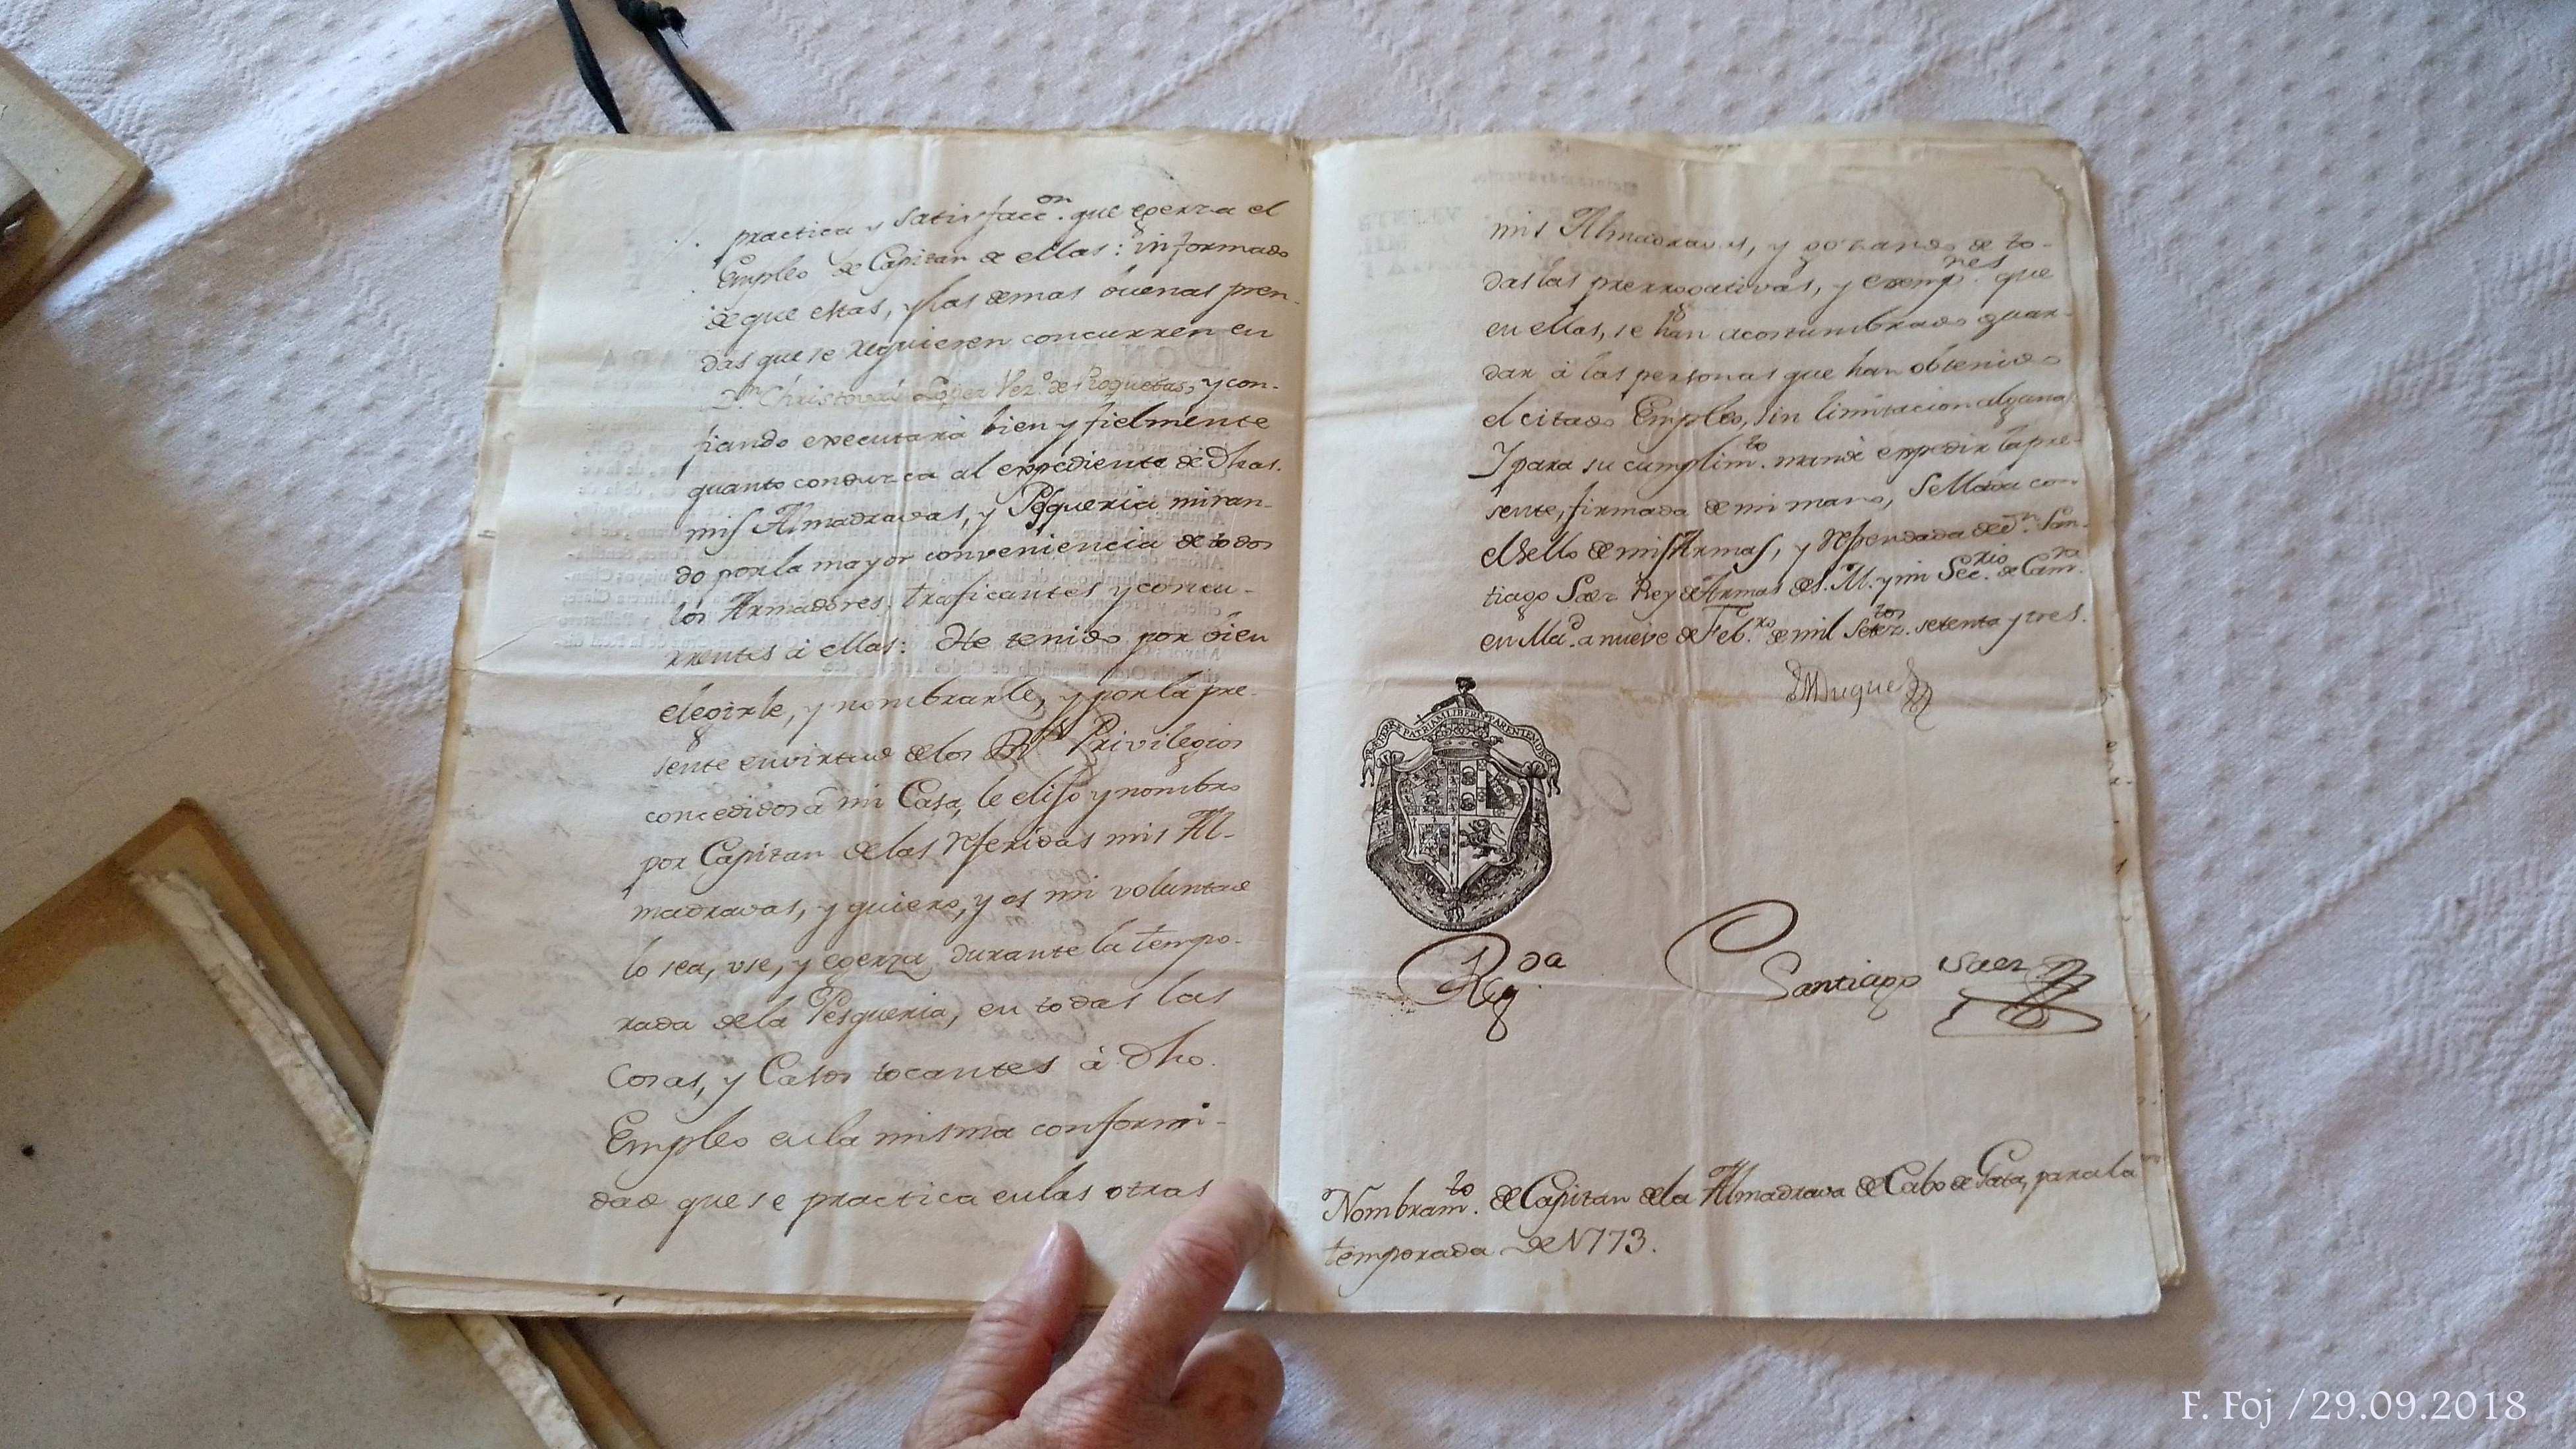 practica y satisfacc.on que egerza el
Empleo de Capitan de ellas: informado
de que estas, y las demas buenas pren-
das que se requieren concurren en
D.n Christoval Lopez Vez.o de Roquetas, y con-
fiando executará bien y fielmente
quanto conduzca al expediente de dhas.
mis Almadravas, y Pesqueria miran-
do por la mayor conveniencia de todos
los Armadores, traficantes y concu-
rrentes á ellas: He tenido por bien
elegirle, y nombrarle, y por la pre-
sente en virtud de los R.s Privilegios
concedidos á mi Casa, le elijo y nombro
por Capitan de las referidas mis Al-
madravas, y quiero, y es mi voluntad
lo sea, use, y egerza durante la tempo-
rada de la Pesqueria, en todas las
Cosas, y Casos tocantes á dho.
Empleo en la misma conformi-
dad que se practica en las otras
mis Almadravas, y gozando de to-
das las prerrogativas, y exemp.nes que
en ellas, se han acostumbrado guar-
dar á las personas que han obtenido
el citado Empleo, sin limitacion alguna
Y para su cumplim.to mandé expedir la pre-
sente, firmada de mi mano, Sellada con
el Sello de mis Armas, y refrendada de D.n San-
tiago Saez Rey de Armas de S. M. y mi Sec.rio de Cam.ra
en Mad. a nueve de Feb.ro de mil Setez.tos setenta y tres.
Duque
PATRIAM LIBERI PARENTEM
Reg.da
Santiago Saez
Nombram.to de Capitan de la Almadrava de Cabo de Gata, para la
temporada de 1773.
F. Foj / 29.09.2018